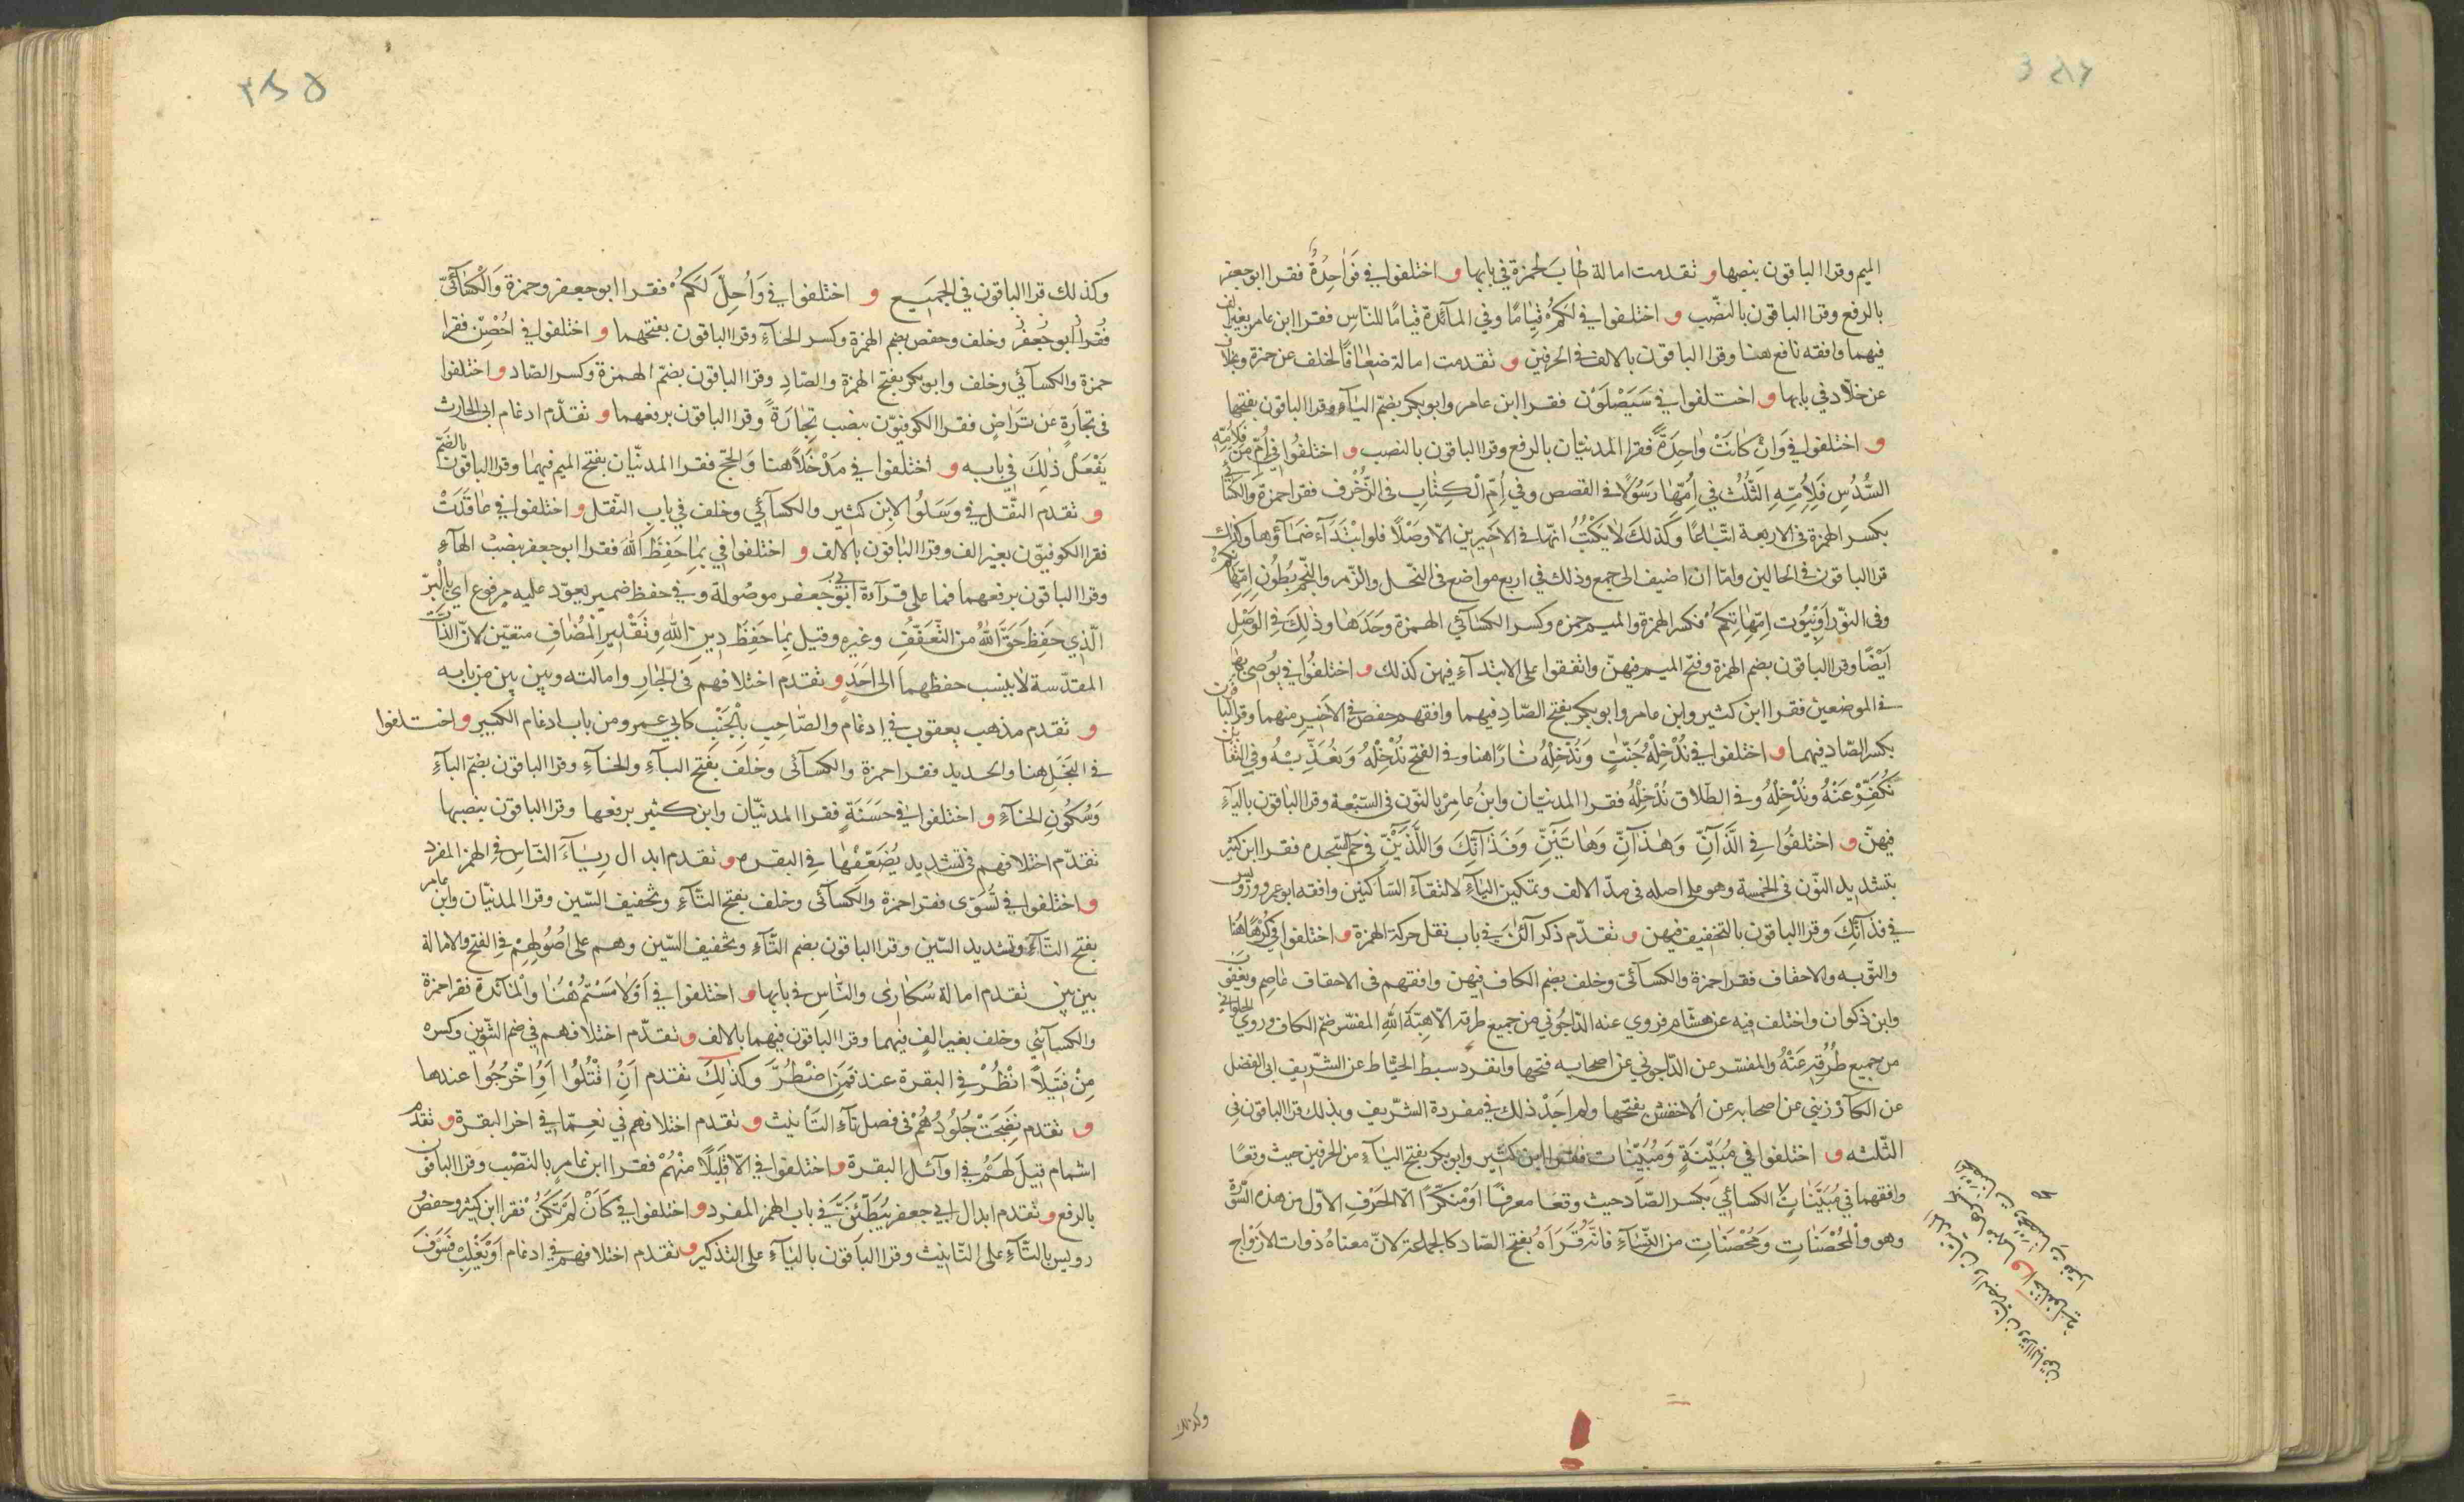 الميم وقرا الباقون بنصبها و تقدمت امالة طابَ لحمزة في بابها و اختلفوا في فَوَاحِدَةٌ فقرا ابو جعفر
بالرفع وقرا الباقون بالنصّب و اختلفوا في لَكُمْ قِيَامًا وفي المآئدة قيامًا للنّاسِ فقرا ابن عامر بغير الف
فيهما وافقه نافع هنا وقرا الباقون بالالف في الحرفين و تقدمت امالة ضِعَافًا لخلف عن حمزة وبخلاف
عن خلّاد في بابها و اختلفوا في سَيَصْلَوْن فقرا ابن عامر وابو بكر بضمّ اليآءِ وقرا الباقون بفتحها
و اختلفوا في وَانْ كَانَتْ وَاحِدَةً فقرا المدنيّان بالرفع وقرا الباقون بالنصب و اختلفوا في اُمّ من فَلِأُمِّهِ
السُّدُسِ فَلِأُمِّهِ الثُّلُثُ في اُمِّهَا رَسُوْلًا في القصص وفي اُمِّ الْكِتَابِ في الزُّخْرف فقرا حمزة والكسآئي
بكسر الهمزة في الاربعة اتّباعًا وكذلك لا يَكْتُبُ انّها في الاخيرين الّا وصْلًا فلو ابْتَدَآء ضمّآؤها وكذلك
قرا الباقون في الحالين وامّا ان اضيف الى جمع وذلك في اربع مواضع في النّحل والزّمر والنّجم بُطُونِ اِمّهَاتِكُمْ
وفي النّور اَوْ بُيُوتِ اِمّهَاتِكُمْ فكسر الهمزة والميم حمزه وكسر الكسآئي الهمزة وحدها وذلك في الوصْلِ
ايضًا وقرا الباقون بضم الهمزة وفتح الميم فيهنّ واتفقوا على الابتدآءِ فيهن كذلك و اختلفُوا في يُوصِى بها
في الموضعين فقرا ابن كثير وابن عامر وابو بكر بفتح الصّادِ فيهما وافقهم حفص في الاخير منهما وقرا الباقون
بكسر الصّاد فيهما و اختلفوا في نُدْخِلْهُ جَنّتٍ وَنُدْخِلْهُ نَارًا هنا وفي الفتح نُدْخِلْهُ وَنُعَذِّبْهُ وفي التغابن
نُكَفِّرْ عَنْهُ ونُدْخِلْهُ وفي الطّلاق نُدْخِلْهُ فقرا المدنيّان وابنُ عامِرْ بالنّون في السّبْعة وقرا الباقون باليآءِ
فيهنّ و اختلفُوا في الَّذَآنِّ وَهٰذَآنِّ وَهَاتَيْنِّ وَفَذَآنِّكَ وَاللَّذَيْنِّ في حم السّجده فقرا ابن كثير
بتشديد النّون في الخمسة وهو على اصله في مدّ الالف وتمكين اليآءِ لالتقآءِ السّاكنين وافقه ابو عمرو ورُوَيس
في فذآنِّكَ وقرا الباقون بالتخفيف فيهن و تقدّم ذكر آلئنَ في باب نقل حركة الهمزة و اختلفوا في كُرْهًا هُنا
والتّوبه والاحقاف فقرا حمزة والكسآئي وخلف بضم الكاف فيهن وافقهم في الاحقاف عاصِم ويَعقوب
وابن ذكوان واختلف فيه عن هشام فروي عنه الدّاجُوني من جميع طرقه الّا هِبَة الله المفسّر ضمّ الكاف وروي الحلواني
من جميع طُرُقِهِ عَنْهُ والمفسّر عن الدّاجوني عن اصحابه فتحها وانفرد سبط الخيّاط عن الشّريف ابي الفضل
عن الكآرَزيني عن اصحابه عن الاخفش بفتحها ولم اجدْ ذلك في مفردة الشّريف وبذلك قرا الباقون في
الثّلثه و اختلفوا في مُبَيِّنَةٍ وَمُبَيِّنَات فقرا ابن كثير وابو بكر بفتح اليآءِ من الحرفين حيث وقعا
وافقهما في مُبَيَّنَاتٍ الكسائي بكسر الصّاد حيث وقعَا معرفًا اوْ منكّرًا الّا الحَرْفِ الاوّل من هذه السُّورة
وهو والْمُحْصَنَاتِ وَمُحْصَنَاتِ من النّسَآءِ فانّه قَرَاَهُ بفتح الصّاد كالجماعة لانّ معناهُ ذوات الازْوَاجِ
وكذلك
وكذلك قرا الباقون في الجميَع و اختلفوا في وَاُحِلّ لَكمْ فقرا ابو جعفر وحمزة وَالْكِسَآئيّ
وخلف وحفص بضم الهمزة وكسر الحآءِ وقرا الباقون بفتحهما و اختلفوا في اُحْصِنّ فقرا
حمزة والكسآئي وخلف وابو بكر بفتح الهمزة والصّادِ وقرا الباقون بضمّ الهمزة وكسر الصّاد و اختلفوا
في تجارةٍ عن تَرَاضٍ فقرا الكوفيّون بنصب تِجَارَةً وقرا الباقون برفعهما و تقدّم ادغام ابي الحارث
يَفْعَلْ ذٰلِكَ في بابه و اختلفوا في مَدْخَلًا هنا والحجّ فقرا المدنيّان بفتح الميم فيهما وقرا الباقون بالضّمّ
و تقدم النّقل في وَسَلوُا لابن كثير والكسآئي وخلف في باب النّقل و اختلفوا في عَاقَدَتْ
فقرا الكوفيّون بغير الف وقرا الباقون بالالف و اختلفوا في بِمَا حَفِظَ اللّٰهُ فقرا ابو جعفر بنصْب الهآءِ
وقرا الباقون برفعهما فما على قرآءة ابي جعفر موصُولة وفي حفظ ضمير يعوّد عليه مرفوع اي بالْبرّ
الّذي حَفِظَ حَقَّ اللّٰهُ من التّعَفّفُِ وغيره وقيل بِمَا حَفِظَ دين اللهِ وتَقْديرالمُضَافِ متعيّن لانّ الذّات
المقدّسة لا ينسب حفظهما الى احَدٍ و تقدم اختلافهم في الجَارِ وامالته وبين بين من بابه
و تقدم مذهب يعقوب في ادغامِ والصَّاحِبِ بِالْجَنْبِ كابي عمرو من باب ادغام الكبير و اختلفوا
في البَخَلِ هنا والحديد فقرا حمزة والكسآئى وخلَف بفتح البآءِ والخآءِ وقرا الباقون بضمّ البآءِ
وَسُكُونِ الخآءِ و اختلفوا في حَسَنَةٍ فقرا المدنيّان وابن كثير برفعها وقرا الباقون بنصبها
تقدّم اختلافهم في تشديد يُضَعّفْهَا في البقرة و تقدم ابدال رِيَآءَ النّاسِ في الهمز المفرد
و اختلفوا في تُسَوّى فقرا حمزة والكسآئى وخلف بفتح التّآءِ وتخفيف السّين وقرا المدنيّان وابن عامر
بفتح التّآءِ وتشديد السّين وقرا الباقون بضم التّآءِ وتخفيف السّين وهم على اُصُولهمْ في الفتح والامالة
بين بين تقدم امالة سُكارى والنّاس في بابها و اختلفوا في اَوْ لَامَسْتُمْ هُنَا والْمَآئدة فقرا حمزة
والكسآئي وخلف بغير الف فيهما وقرا الباقون فيهما بالالف و تقدّم اختلافهم في ضم التّنوين وكسره
مِنْ فَتِيلًا انْظُرْ في البقرة عند فَمَنِ اضْطُرّ وكذٰلِكَ تقدم اَنِ اقْتُلُوا اَوِ اخْرُجُوا عندها
و تقدم نضِجَتْ جُلُودُهُمْ في فصل تآءِ التّأنيث و تقدم اختلافهم في نعِمّا في اخر البقرة و تقدّم
اشمام قيلَ لَهُمُ في اوآئل البقرة و اختلفوا في الّا قليلًا منْهُمْ فقرا ابن عامرٍ بالنّصْب وقرا الباقون
بالرفع و تقدم ابدال ابي جعفر لَيُبَطّئَنَّ في باب الهمز المفرد و اختلفوا في كَاَنْ لَمْ تَكُنْ فقرا ابن كثير وحفصُ
رويس بالتّآءِ على التّانيث وقرا الباقون باليآءِ على التذكير و تقدم اختلافهم في ادغام اَوْ يَغْلِبْ فَسَوْفَ